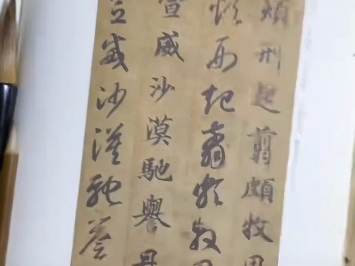 煩刑起翦頗牧用
煩刑起翦頗牧
宣威沙漠馳譽丹
宣威沙漠馳譽